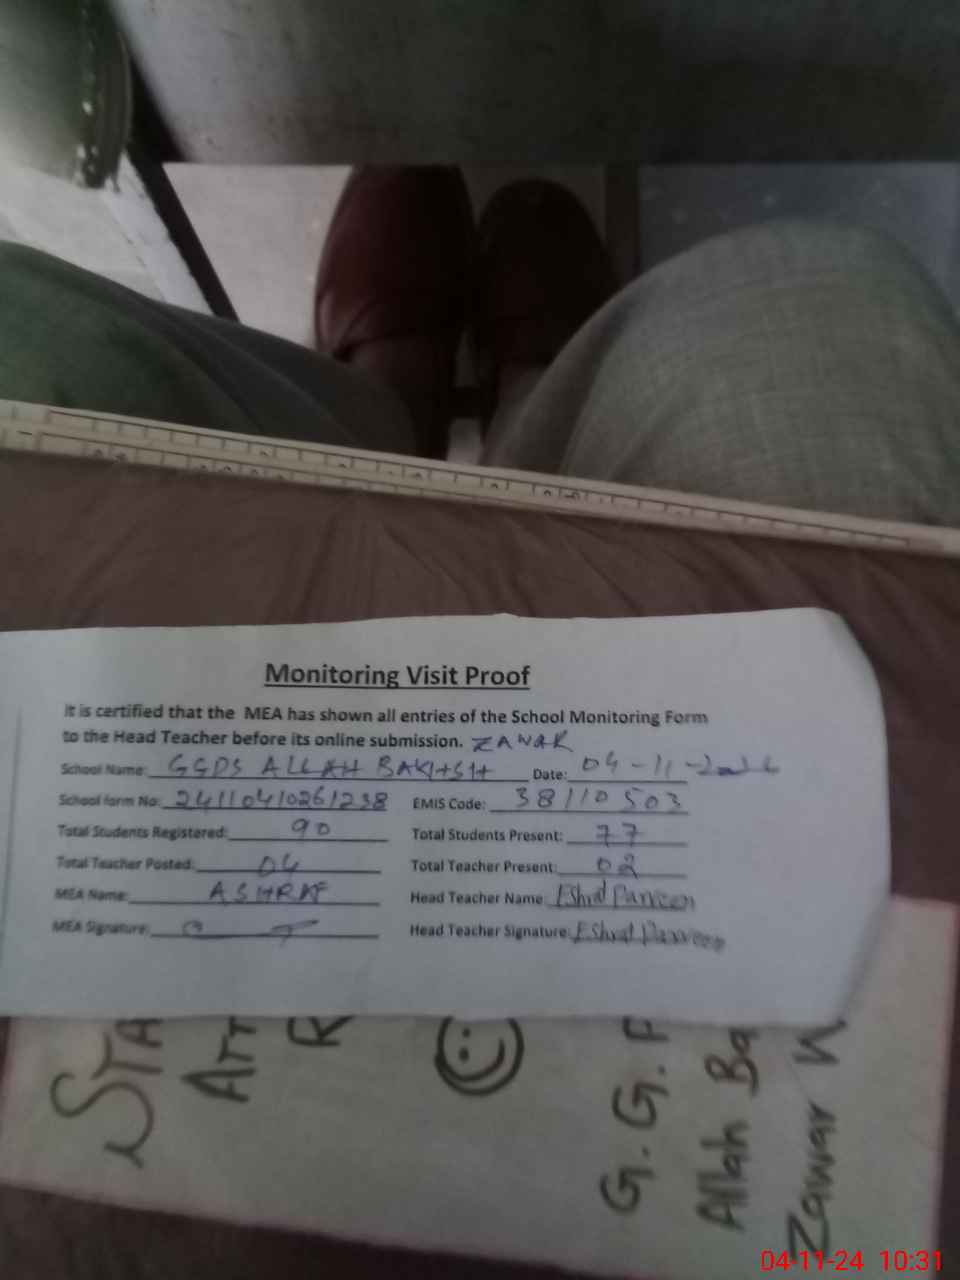 Monitoring Visit Proof
It is certified that the MEA has shown all entries of the School Monitoring Form
to the Head Teacher before its online submission. ZAWAR
School Name: GGPS ALLAH BAKHSH Date: 04-11-2024
School form No: 24110410261238 EMIS Code: 38110503
Total Students Registered: 90 Total Students Present: 77
Total Teacher Posted: 04 Total Teacher Present: 02
MEA Name: ASHRAF Head Teacher Name: Eshrat Parveen
MEA Signature: Head Teacher Signature: Eshrat Parveen
STA
Att
R
G. G. P
Allah Ba
Zawar W
04-11-24 10:31